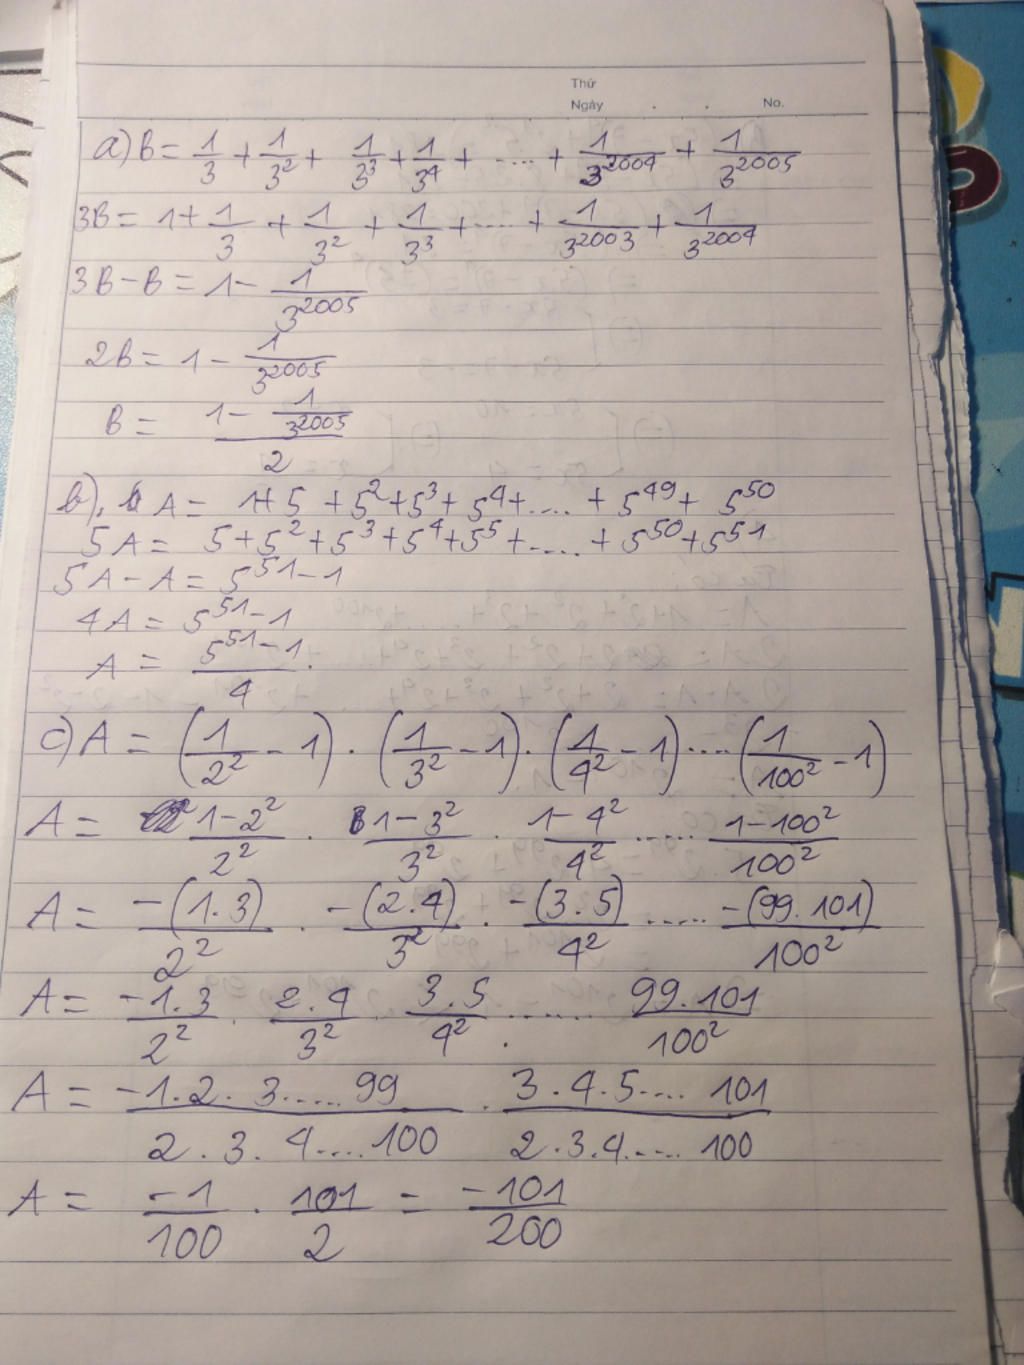 Thứ
Ngày . . No.
a) B = 1/3 + 1/3² + 1/3³ + 1/3⁴ + ..... + 1/3²⁰⁰⁴ + 1/3²⁰⁰⁵
3B = 1 + 1/3 + 1/3² + 1/3³ + ..... + 1/3²⁰⁰³ + 1/3²⁰⁰⁴
3B - B = 1 - 1/3²⁰⁰⁵
2B = 1 - 1/3²⁰⁰⁵
B = (1 - 1/3²⁰⁰⁵)/2
b), A = 1 + 5 + 5² + 5³ + 5⁴ + .... + 5⁴⁹ + 5⁵⁰
5A = 5 + 5² + 5³ + 5⁴ + 5⁵ + ..... + 5⁵⁰ + 5⁵¹
5A - A = 5⁵¹ - 1
4A = 5⁵¹ - 1
A = (5⁵¹ - 1)/4.
c) A = (1/2² - 1) . (1/3² - 1) . (1/4² - 1) .... (1/100² - 1)
A = (1 - 2²)/2² . (1 - 3²)/3² . (1 - 4²)/4² ..... (1 - 100²)/100²
A = -(1.3)/2² . -(2.4)/3² . -(3.5)/4² ..... -(99.101)/100²
A = -1.3/2² . 2.4/3² . 3.5/4² ...... 99.101/100²
A = -1.2.3.....99/2.3.4....100 . 3.4.5.... 101/2.3.4..... 100
A = -1/100 . 101/2 = -101/200